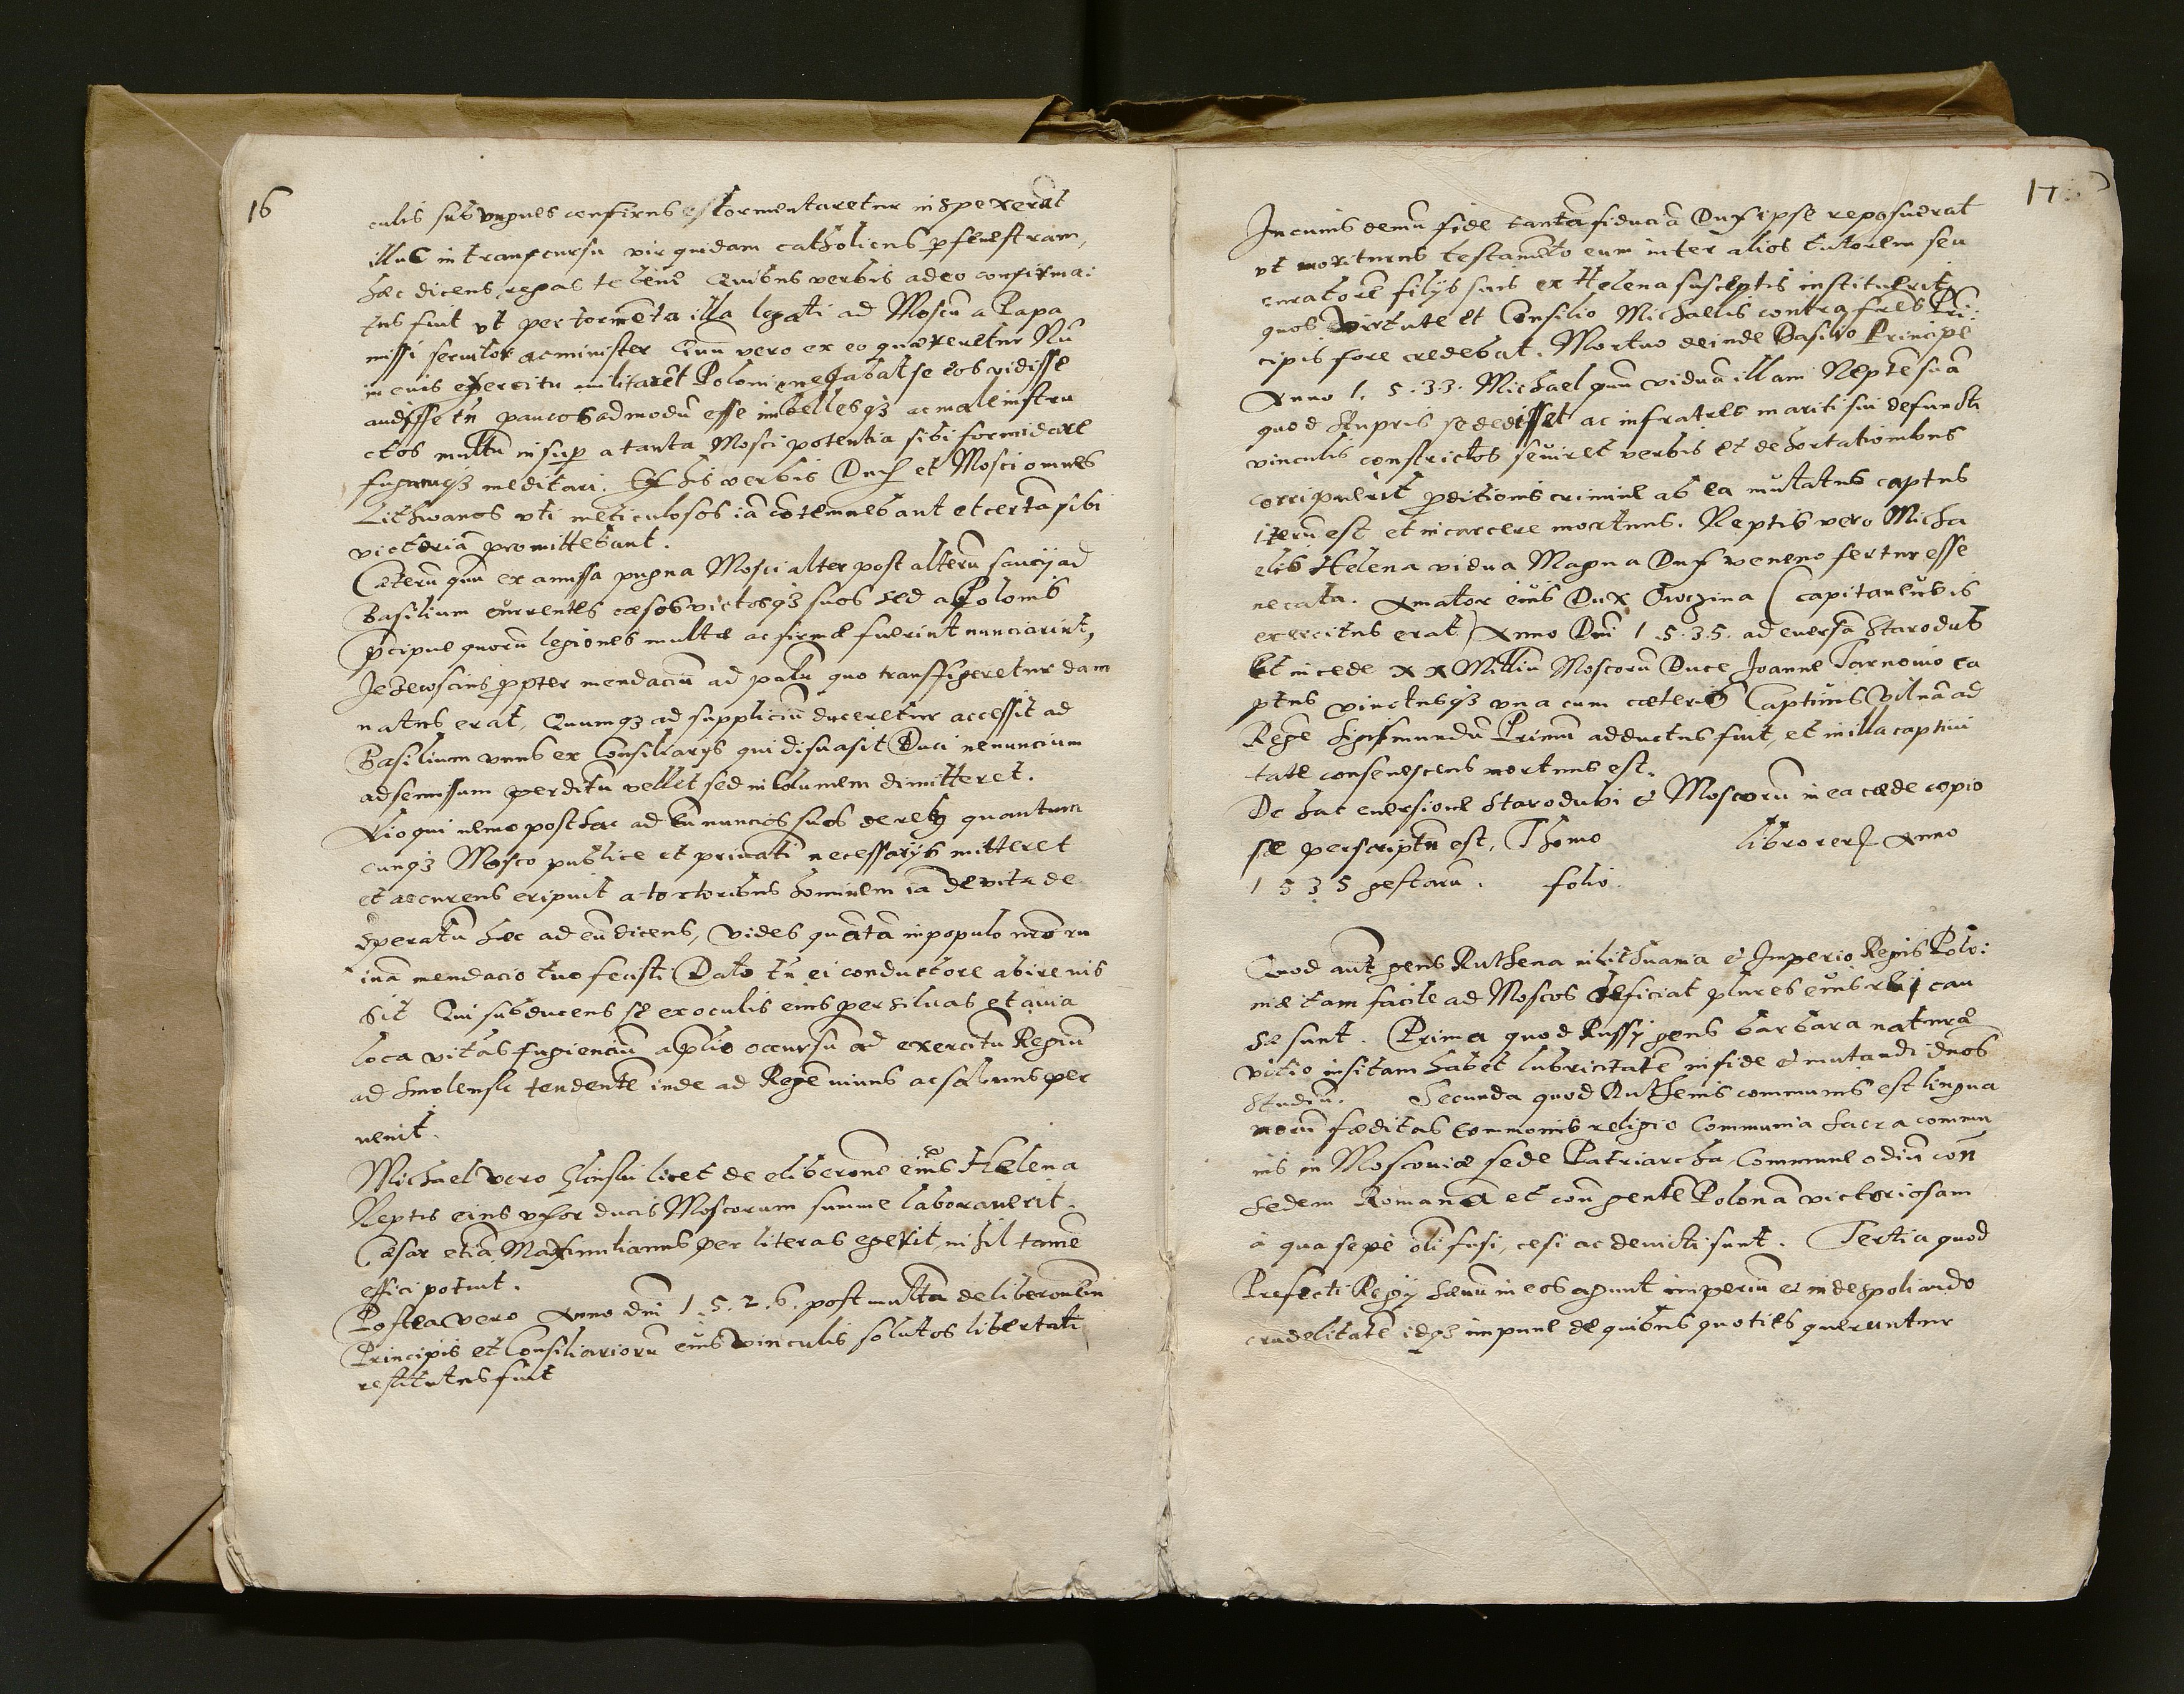 16
culis sub vngues confixus et tormentaretur inspexerat
illuc in transcursu vir quidam catholicus p fenestram,
haec dicens, negas te Quibus verbis adeo confirma:
tus fuit vt per tormēta illa legati ad Moscū a Papa
missi seruitor ac minister Cum vero ex eo quaereretur Nū
in cuius exercitu militarēt Poloni, negabat se eos vidisse
audisse tn̄ paucos admodū esse imbellesqȝ ac male instru
ctos multū insup a tanta Mosci potentia sibi formidare
fugamqȝ meditari. Ex his verbis Dux et Mosci omnes
Lithwanos vti meticulosos iā cōtemnebant et certā sibi
victoriā promittebant.
Caeterū quū ex amissa pugna Mosci alter post alterū saucij ad
Basilium currentes caesos victosqȝ suos sed a Polonis
p̄cipue quorū legiones multae ac firmae fuerint nunciarint,
propter mendaciū ad palū quo transfigeretur dam
natus erat, Quumqȝ ad suppliciū duceretur accessit ad
Basilium vnus ex Consiliarijs qui disuasit Duci ne nuncium
ad se missum perditū vellet sed incolumem dimitteret.
Alioqui nemo posthac ad eū nuncios suos de rebȝ quantum
cunqȝ Mosco publice et priuatī necessarijs mitteret
et accurens eripuit a tortoribus hominem iā de vita de
speratū haec ad eū dicens, vides quātā in populo nrō ru
inā mendacio tuo fecisti Dato tn̄ ei conductore abire ius
sit Qui subducens se ex oculis eius per siluas et auia
loca vitabs fugienciū a plio occursū ad exercitū Regiū
ad Smolensk tendentē inde ad Regē viuus ac saluus per
uenit.
Michael vero Glinski licet de eliberone eius Helena
Neptis eius vxor ducis Moscorum summe laborauerit.
Caesar etiā Maximilianus per literas egerit, nihil tamē
effici potuit.
Postea vero Anno dnī 1.5.2.6. post multā
Principis et Consiliariorū eius vinculis solutos libertati
restitutus fuit
17
In cuius demū fide tantā fiduciā Dux ipse reposuerat
vt moriturus testamēto eum inter alios tutorem seu
curatorē filijs suis ex Helena susceptis instituerit,
quos virtute et Consilio Michaelis contra fres Prī:
cipis fore credebat. Mortuo deinde Basilio Principe
Anno 1.5.33. Michael quū viduā illam Neptē suā
quod stupris se dedisset ac in fratres mariti sui defuncti
vinculis constrictos seuiret verbis et dehortationibus
corripuerit p̄ditionis crimine ab ea captus
iterū est et in carcere mortuus. Neptis vero Micha
elis Helena vidua Magna Dux veneno fertur esse
necata. Amator eius Dux Owczina (capitaneus is
exercitus erat) Anno Dnī 1.5.3.5. ad euersā Starodub
et in cede XX Milliū Moscorū Duce Joanne Tarnouio ca
ptus vinctusqȝ vna cum caeteris Captiuis Vilnā ad
Regē Sigismundū Primū adductus fuit, et in illa captiui
tate consenescens mortuus est.
De hac euersione Starodubi & Moscorū in ea caede copio
se perscriptū est, Thomo libro rerū Anno
1 5 3 5 gestarū. folio.
Quod aūt gens Ruthena in Lithuania & Imperio Regis Polo:
niae tam facile ad Moscos deficiat plures eius rei cau
sae sunt. Prima quod Russij gens barbara naturā
vitio insitam habet lubricitatē in fide & mutandi dnōs
studiū. Secunda quod Ruthenis communis est lingua
morū faeditas communis religio Communia Sacra commu
nis in Moscouiae sede Patriarcha, Commune odiū con
Sedem Romanā et con gentē Polonā victoriosam
à qua sepe olī fusi, cesi ac deuicti sunt. Tertia quod
Prefecti Regij Saeuū in eos agunt imperiū & in despoliando
crudelitatē idqȝ impune de quibus quoties queruntur